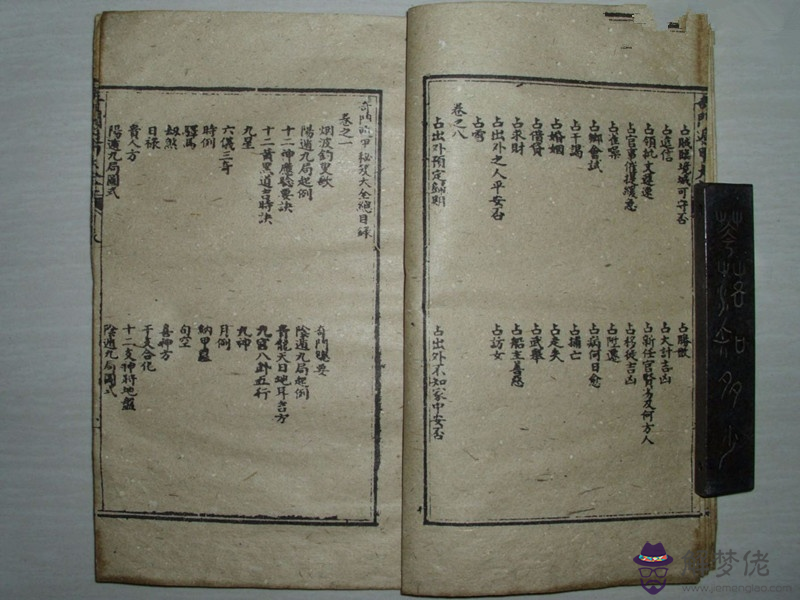 占賊臨境城可守否 占勝敗
占遠信 占大計吉凶
占領批文遲速 占新任官賢否及何方人
占官事催提緩急 占移徙吉凶
占雀噪 占陞遷
占鄉會試 占病何日愈
占干謁 占捕亡
占婚姻 占走失
占借貸 占武舉
占求財 占船主善惡
占出外之人平安否 占訪女
占雪
卷之八
占出外預定歸期 占出外不知家中安否
奇門遁甲秘笈大全總目錄
卷之一
烟波釣叟歌 奇門賦要
陽遁九局起例 陰遁九局起例
十二神應驗要訣 天目地耳吉方
十二黃黑道吉時訣 九宮八卦五行
九星 九神
六儀三奇 月例
時例 納甲
驛馬 旬空
劫煞 喜神方
日祿 干支合化
貴人方 十二支神將地盤
陽遁九局圖式 陰遁九局圖式
花落知多少
解梦佬
www.jiemenglao.com